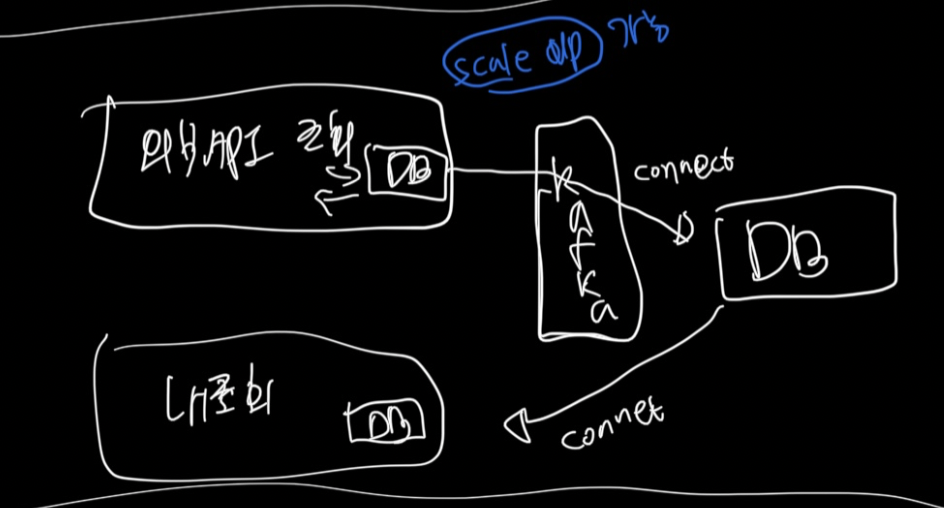 scale up 가능
외부API 조회
DB
kafka
connect
DB
내조회
DB
connet